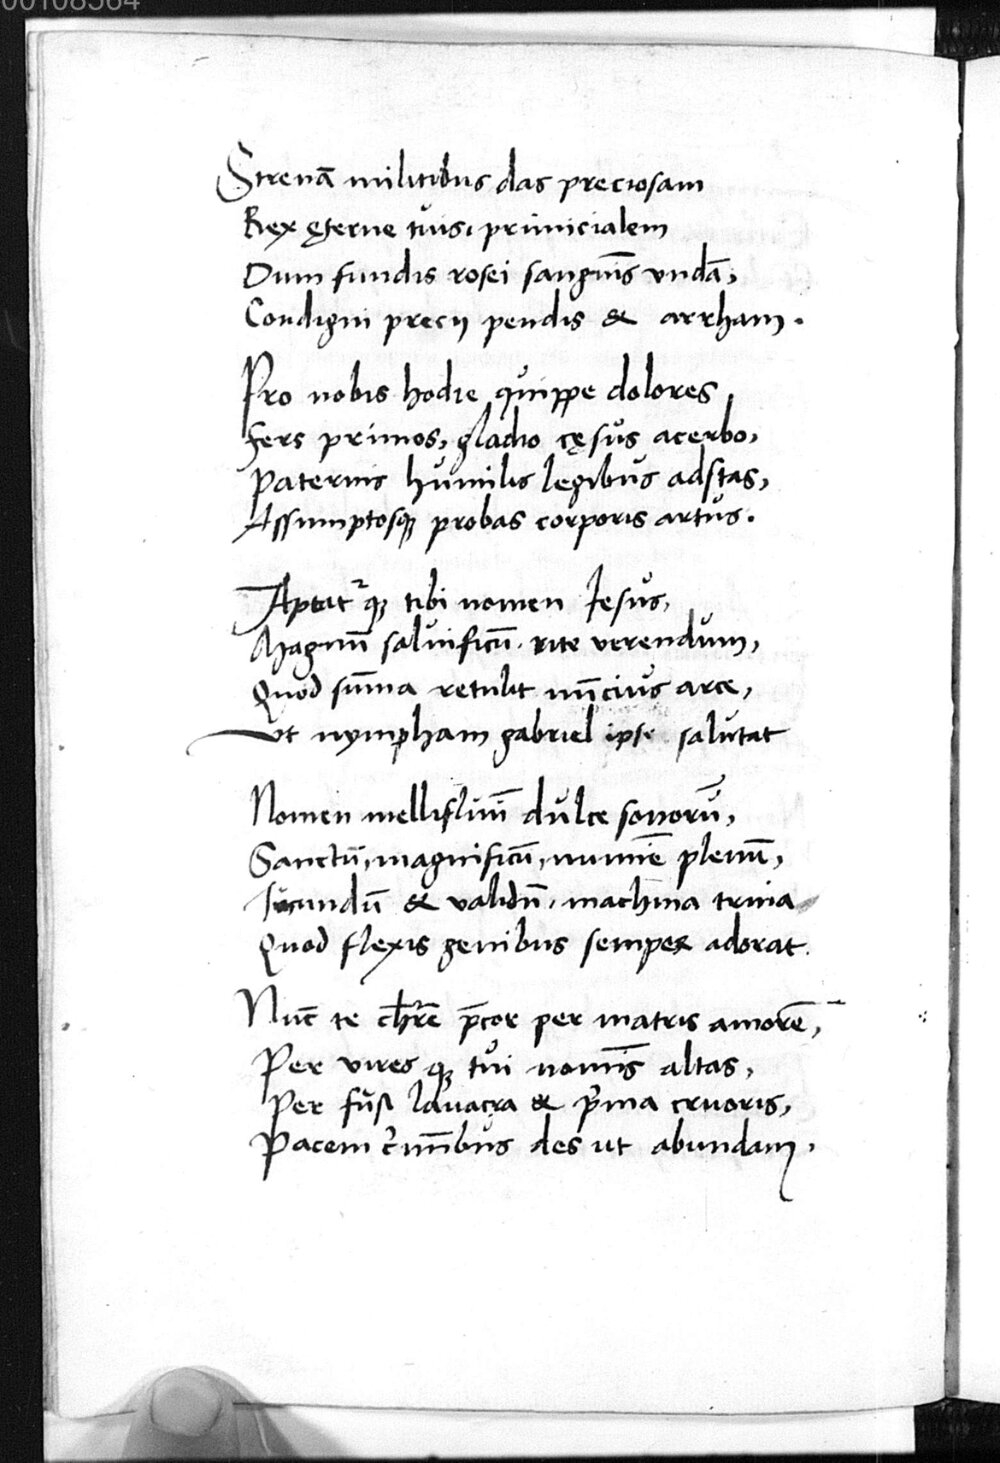 00108564
Strenā militibus das preciosam
Rex ęterne tuis, primicialem
Dum fundis rosei sanguīs vndā,
Condigni precij pendis & arrham.
Pro nobis hodie quippe dolores
Fers primos, gladio cęsus acerbo,
Paternis humilis legibus adstas,
Assumptosqꝫ probas corporis artus.
Aptatᷣ qꝫ tibi nomen Jesus,
Magnū saluificū rite verendum,
Quod sūma retulit nūcius arce,
Ut nympham gabriel ipse salutat
Nomen mellifluū dulce sonorū,
Sanctū, magnificū, numīe plenū,
Iucundū & validū, machina trina
Quod flexis genibus semper adorat.
Nūc te p̄cor per matris amorē,
Per vires qꝫ tui nomīs altas,
Per fusi lauacra & p̄ma cruoris,
Pacem des ut abundam.